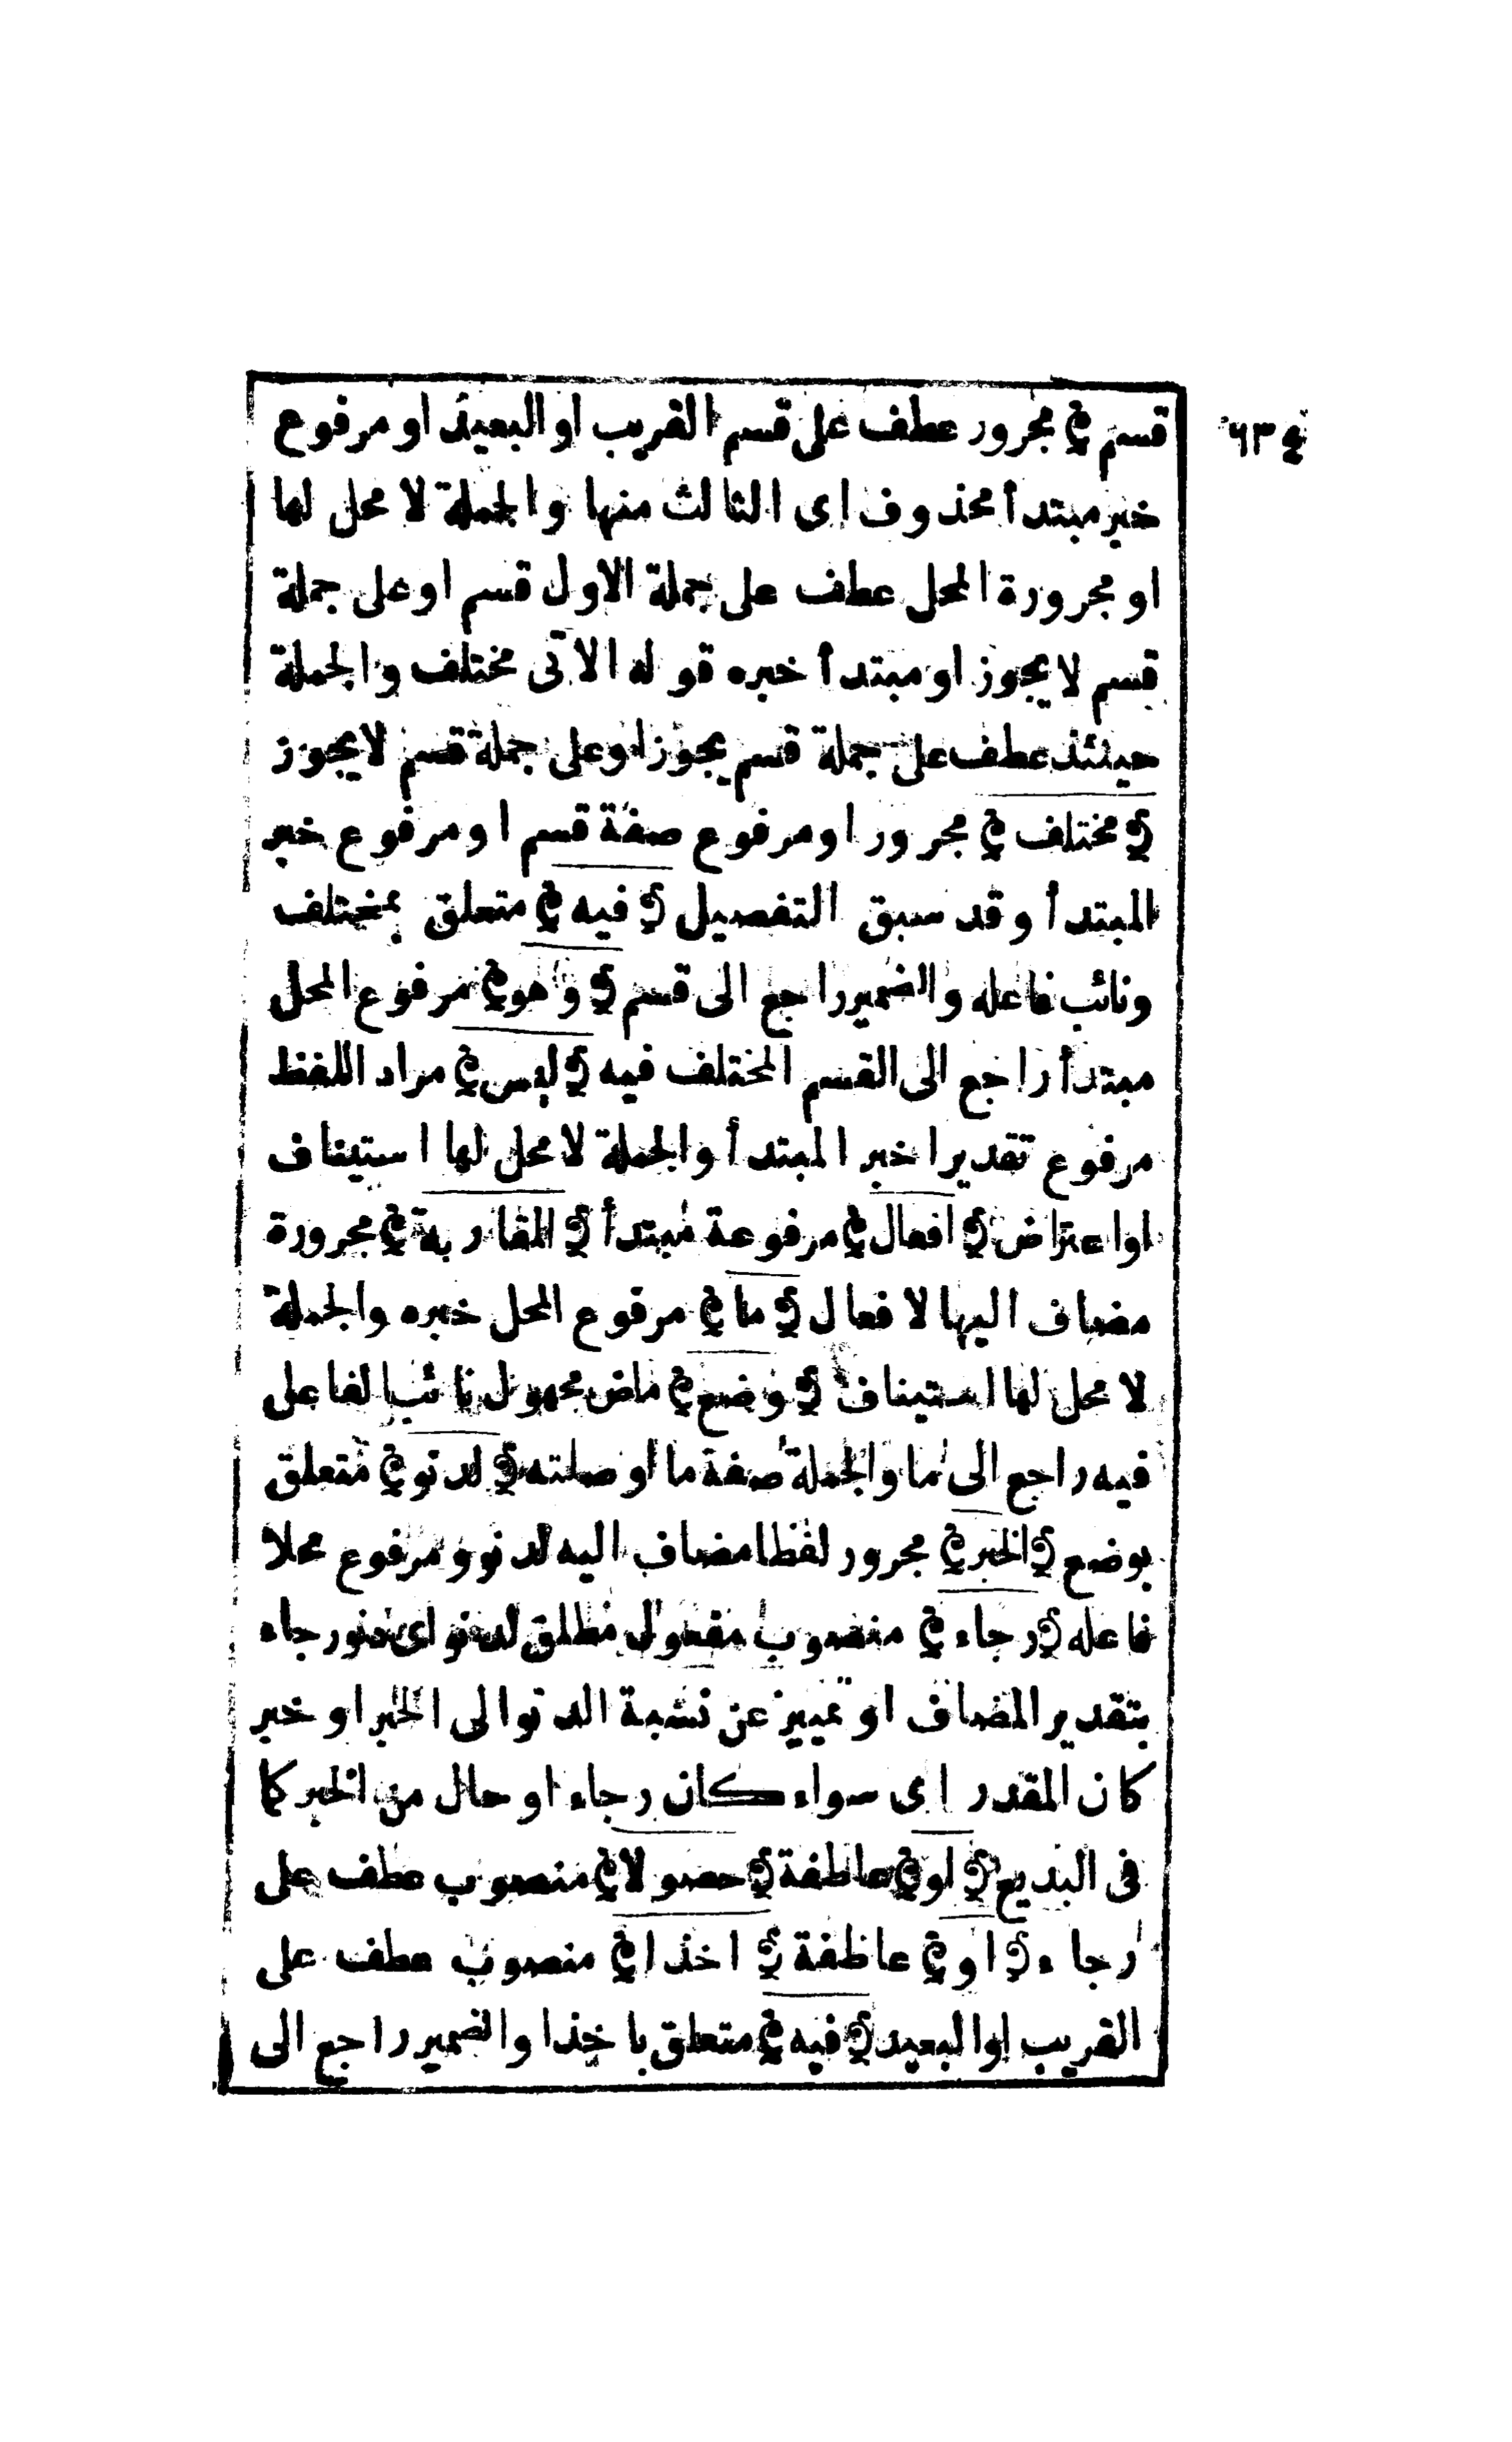 ٦٣٤
قسم ﴾ مجرور عطف على قسم القريب او البعيد او مرفوع
خبر مبتدأ محذوف اى الثالث منها والجملة لا محل لها
او مجرورة المحل عطف على جملة الاول قسم او على جملة
قسم لا يجوز او مبتدأ خبره قوله الآتى مختلف والجملة
حينئذ عطف على جملة قسم يجوز او على جملة قسم لا يجوز
﴿ مختلف ﴾ مجرور او مرفوع صفة قسم او مرفوع خبر
المبتدأ وقد سبق التفصيل ﴿ فيه ﴾ متعلق بمختلف
ونائب فاعله والضمير راجع الى قسم ﴿ وهو ﴾ مرفوع المحل
مبتدأ راجع الى القسم المختلف فيه ﴿ ليس ﴾ مراد اللفظ
مرفوع تقديرا خبر المبتدأ والجملة لا محل لها استيناف
او اعتراض ﴿ افعال ﴾ مرفوعة مبتدأ ﴿ المقاربة ﴾ مجرورة
مضاف اليها لافعال ﴿ ما ﴾ مرفوع المحل خبره والجملة
لا محل لها استيناف ﴿ وضع ﴾ ماض مجهول نائب الفاعل
فيه راجع الى ما والجملة صفة ما او صلته ﴿ لدنو ﴾ متعلق
بوضع ﴿ الخبر ﴾ مجرور لفظا مضاف اليه لدنو ومرفوع محلا
فاعله ﴿ رجاء ﴾ منصوب مفعول مطلق لدنو اى دنو رجاء
بتقدير المضاف او تمييز عن نسبة الدنو الى الخبر او خبر
كان المقدر اى سواء كان رجاء او حال من الخبر كما
فى البديع ﴿ او ﴾ عاطفة ﴿ حصولا ﴾ منصوب عطف على
رجاء ﴿ او ﴾ عاطفة ﴿ اخذا ﴾ منصوب عطف على
القريب او البعيد ﴿ فيه ﴾ متعلق باخذا والضمير راجع الى